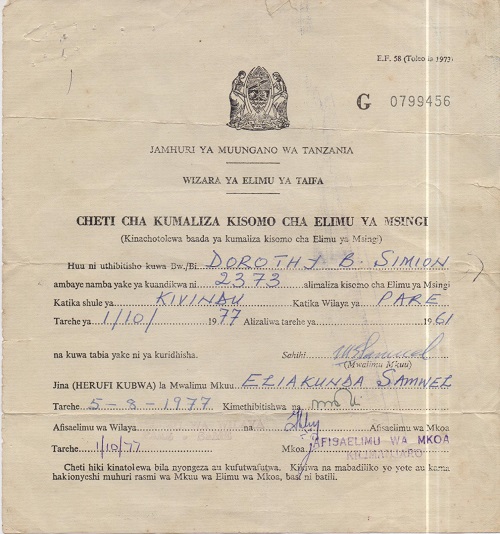 E.F. 58 (Toleo la 1973)
G 0799456
JAMHURI YA MUUNGANO WA TANZANIA
WIZARA YA ELIMU YA TAIFA
CHETI CHA KUMALIZA KISOMO CHA ELIMU YA MSINGI
(Kinachotolewa baada ya kumaliza kisomo cha Elimu ya Msingi)
Huu ni uthibitisho kuwa Bw./Bi. DOROTHY B. SIMION
ambaye namba yake ya kuandikwa ni 2373 alimaliza kisomo cha Elimu ya Msingi
Katika shule ya KIVINDU Katika Wilaya ya PARE
Tarehe ya 1/10/ 1977 Alizaliwa tarehe ya 1961
na kuwa tabia yake ni ya kuridhisha. Sahihi
(Mwalimu Mkuu)
Jina (HERUFI KUBWA) la Mwalimu Mkuu ELIAKUNDA SAMWEL
Tarehe 5-8-1977 Kimethibitishwa na
Afisaelimu wa Wilaya na Afisaelimu wa Mkoa
Tarehe 1/10/77 Mkoa AFISAELIMU WA MKOA
KILIMANJARO
Cheti hiki kinatolewa bila nyongeza au kufutwafutwa. Kikiwa na mabadiliko yo yote au kama
hakionyeshi muhuri rasmi wa Mkuu wa Elimu wa Mkoa, basi ni batili.